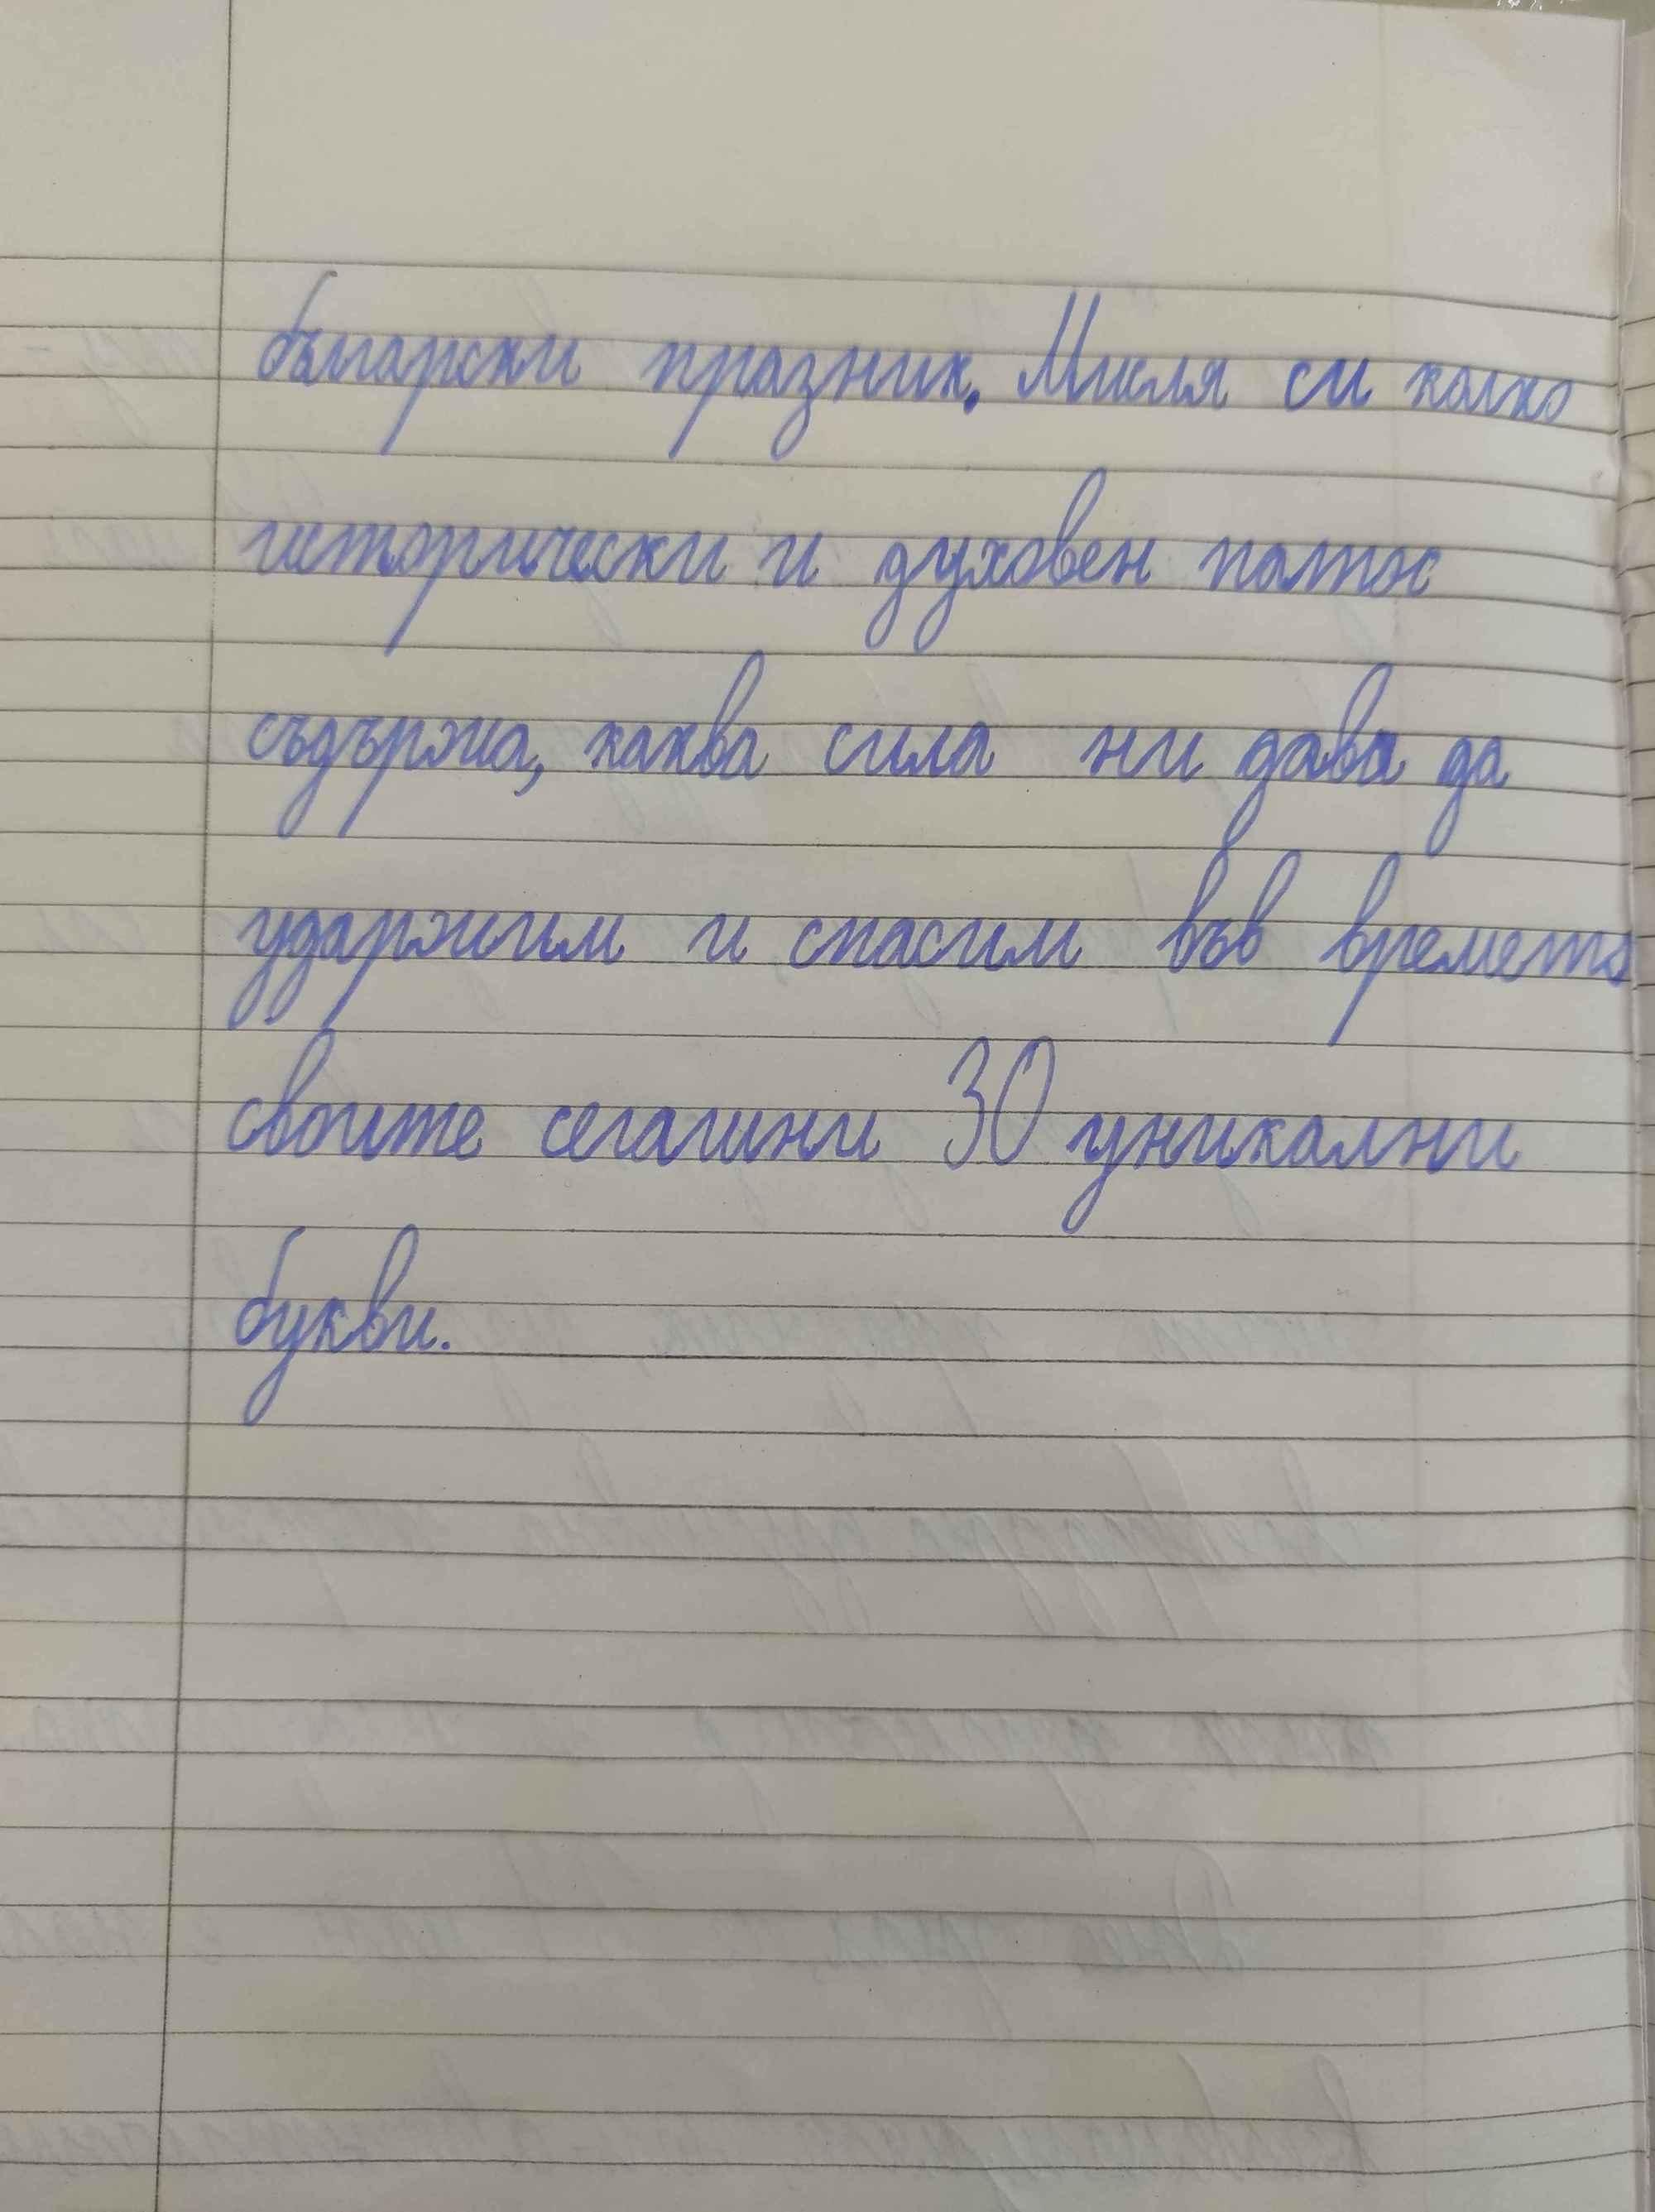 български празник. Мисля си колко
исторически и духовен патос
съдържа, каква сила ни дава да
ударжим и спасим във времето
своите сегашни 30 уникални
букви.